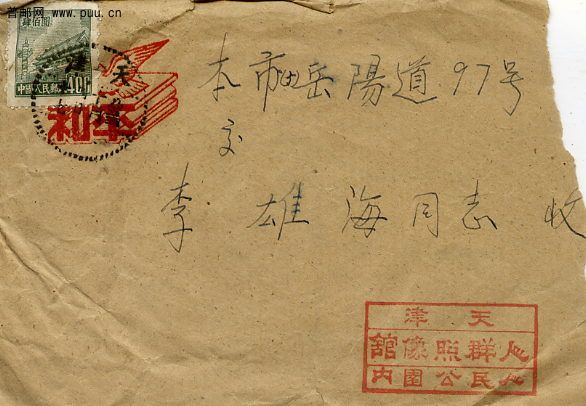 首邮网 www.puu.cn
肆佰圓
400
天津
和平
本市岳陽道97号
交
李雄海同志收
天津
人民群照像舘
人民公園内